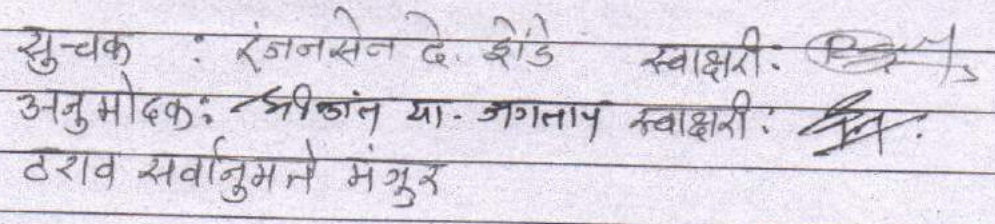 सुचक : रंजनसेन दे. झोडे स्वाक्षरी:
अनुमोदक: श्रीकांत या. जगताप स्वाक्षरी:
ठराव सर्वानुमते मंजुर